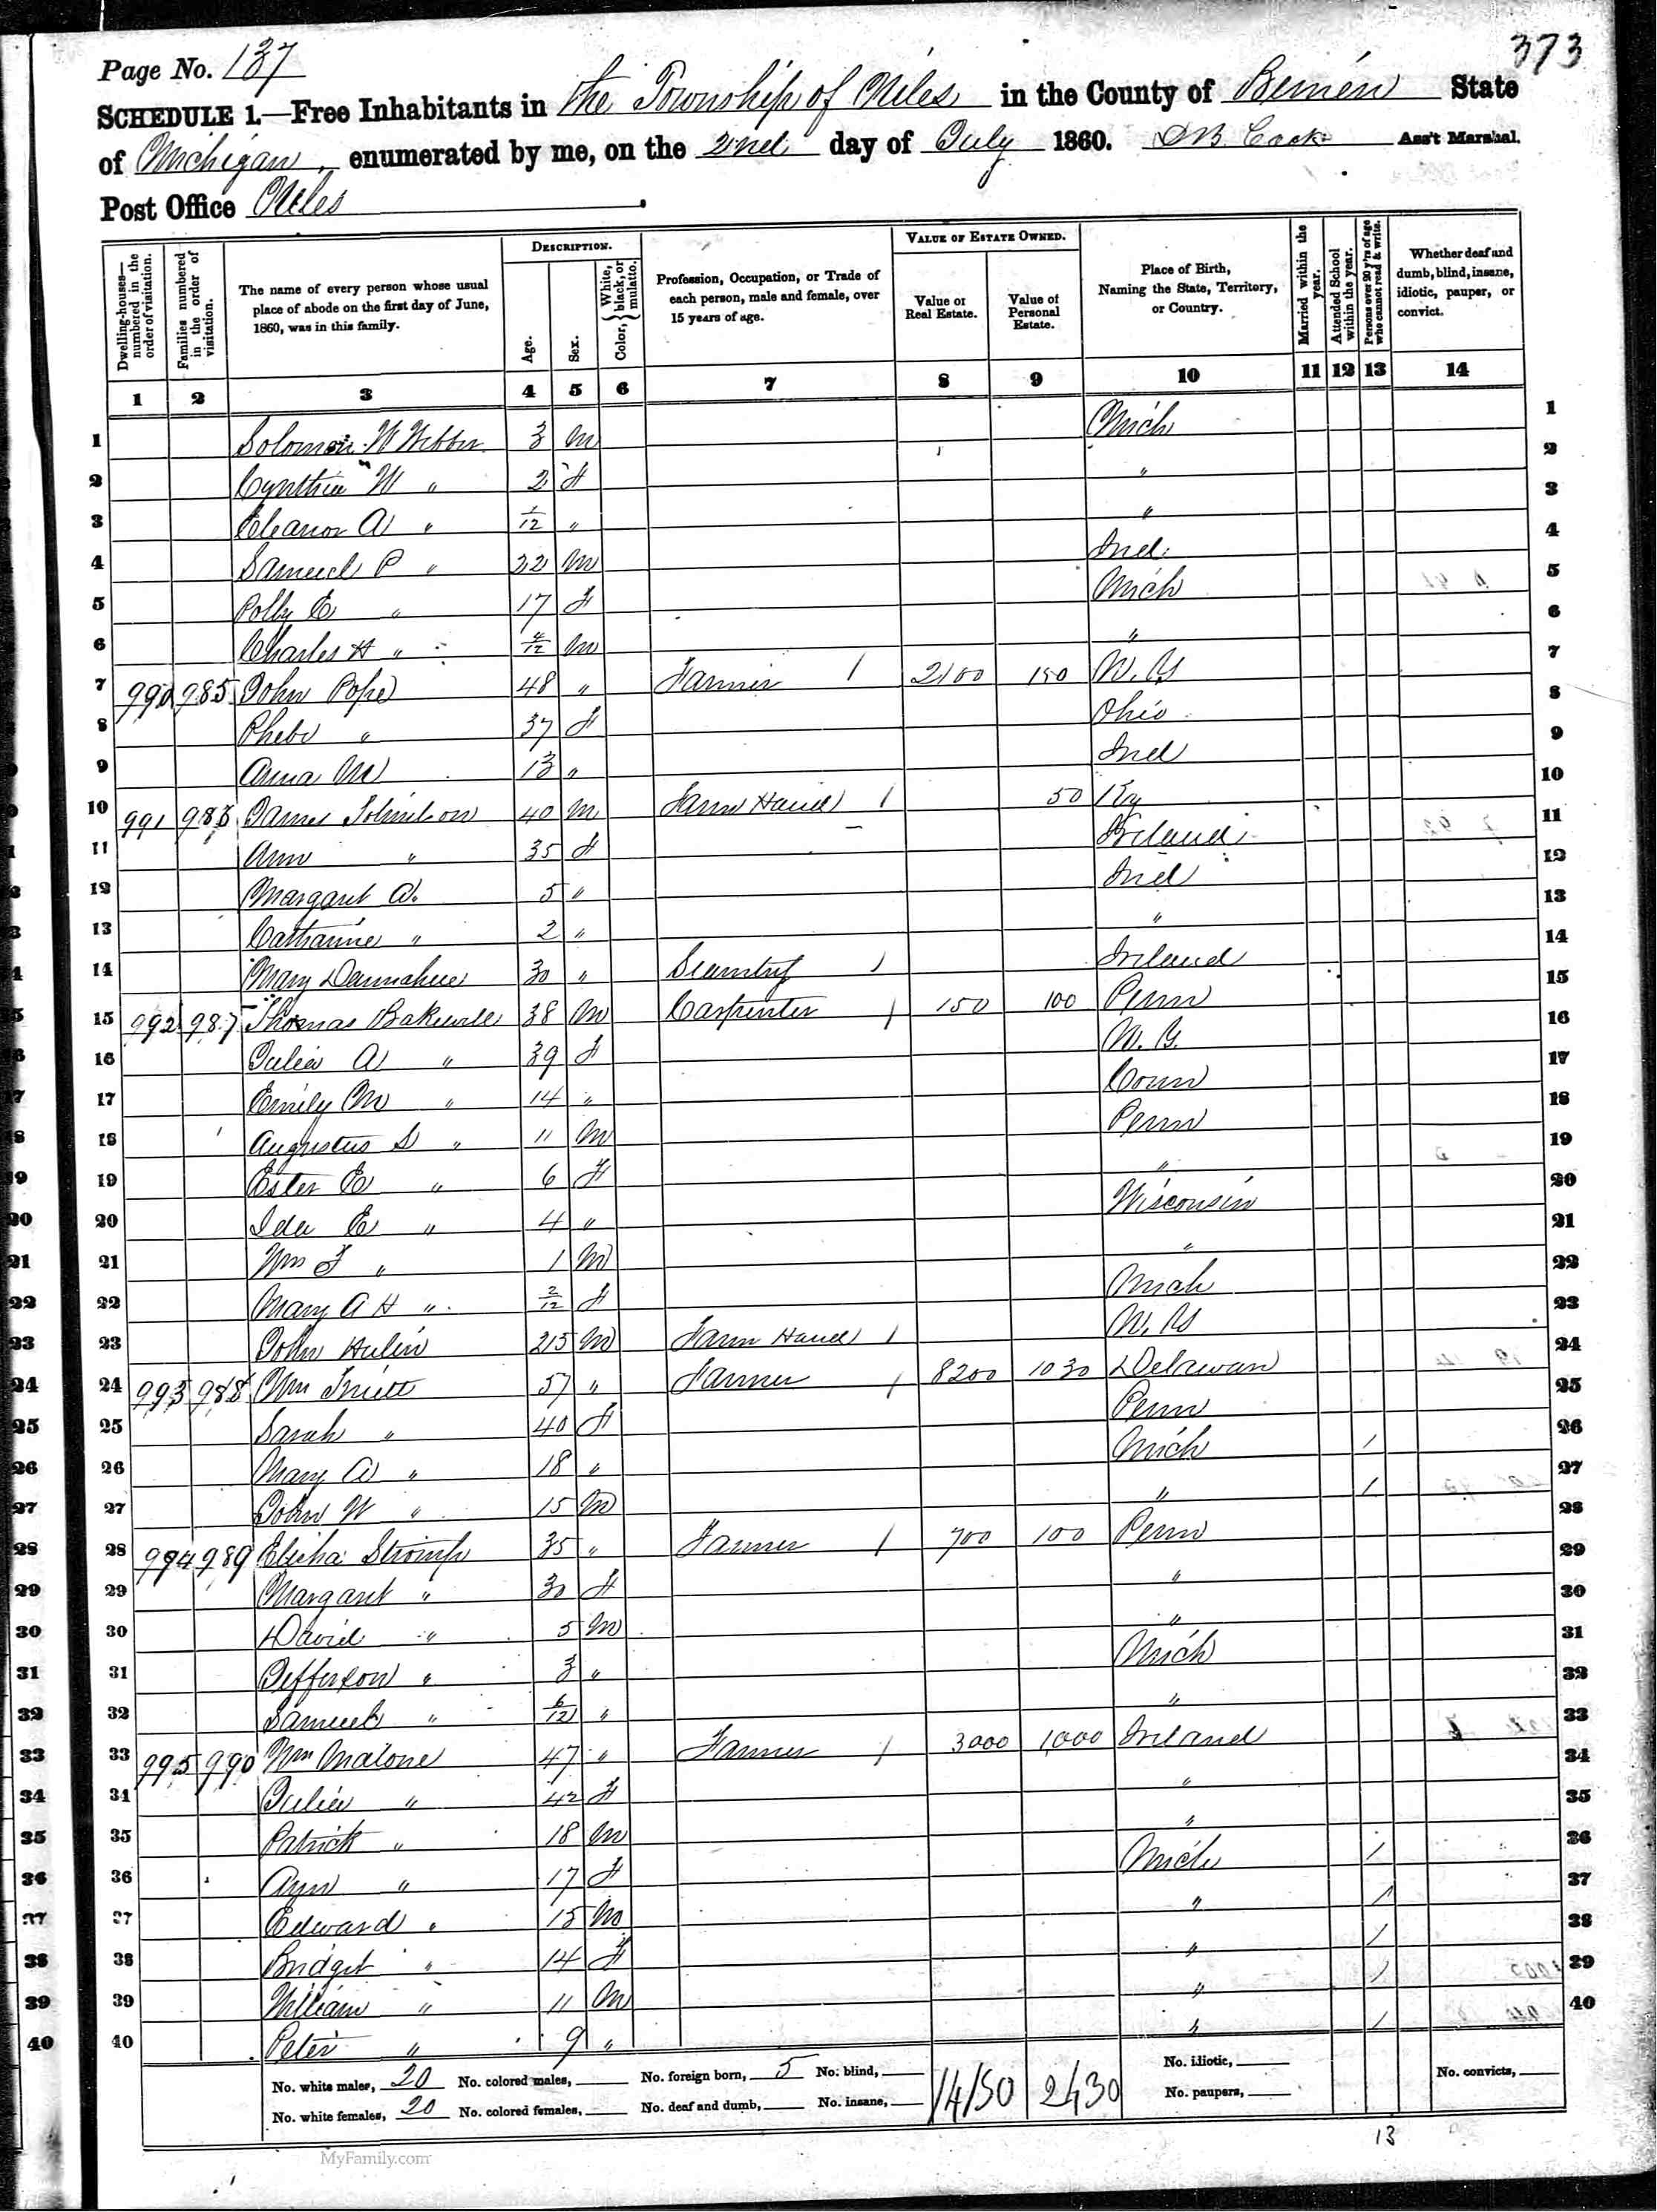 373
Page No. 137
SCHEDULE 1.—Free Inhabitants in the Township of Niles in the County of Berrien State
of Michigan, enumerated by me, on the 2nd day of July 1860. Ass't Marshal.
Post Office Niles.
Dwelling-houses—numbered in the order of visitation. Families numbered in the order of visitation. The name of every person whose usual place of abode on the first day of June, 1860, was in this family. DESCRIPTION. Age. Sex. Color, White, black, or mulatto. Profession, Occupation, or Trade of each person, male and female, over 15 years of age. VALUE OF ESTATE OWNED. Value of Real Estate. Value of Personal Estate. Place of Birth, Naming the State, Territory, or Country. Married within the year. Attended School within the year. Persons over 20 y'rs of age who cannot read & write. Whether deaf and dumb, blind, insane, idiotic, pauper, or convict.
1 2 3 4 5 6 7 8 9 10 11 12 13 14
1 Solomon W Webber 3 M Mich 1
2 Cynthia W " 2 F " 2
3 Eleanor A " 1/12 " " 3
4 Samuel P " 22 M Ind. 4
5 Polly E " 17 F Mich 5
6 Charles H " 4/12 M " 6
7 990 985 John Pope 48 " Farmer 1 2100 150 N. Y 7
8 Phebe " 37 F Ohio 8
9 Anna M 13 " Ind 9
10 991 986 James Johnson 40 M Farm Hand 1 50 Ky 10
11 Ann " 35 F Ireland 11
12 Margaret A. 5 " Ind 12
13 Catharine " 2 " " 13
14 Mary Dannahue 30 " 1 Ireland 14
15 992 987 Thomas Bakewell 38 M Carpenter 1 150 100 Penn 15
16 Julia A " 39 F N. Y. 16
17 Emily M " 14 " Conn 17
18 Augustus S " 11 M Penn 18
19 Ester E " 6 F " 19
20 Ida E " 4 " Wisconsin 20
21 Wm F " 1 M " 21
22 Mary A H " 2/12 F Mich 22
23 John Hulin M Farm Hand 1 N. Y 23
24 993 988 Wm Truitt 57 " Farmer 1 8200 1030 Delawar 24
25 Sarah " 40 F Penn 25
26 Mary A " 18 " Mich 1 26
27 John W " 15 M " 1 27
28 994 989 Elisha 35 " Farmer 1 700 100 Penn 28
29 Margaret " 30 F " 29
30 David " 5 M " 30
31 Jefferson " 3 " Mich 31
32 Samuel " 6/12 " " 32
33 995 990 Wm Malone 47 " Farmer 1 3000 1,000 Ireland 33
34 Julia " 42 F " 34
35 Patrick " 18 M " 35
36 Ann " 17 F Mich 1 36
37 Edward " 15 M " 1 37
38 Bridget " 14 F " 1 38
39 William " 11 M " 1 39
40 Peter " 9 " " 1 40
No. white males, 20 No. colored males, No. foreign born, 5 No. blind, 14150 2430 No. idiotic, No. convicts,
No. white females, 20 No. colored females, No. deaf and dumb, No. insane, No. paupers,
13
MyFamily.com